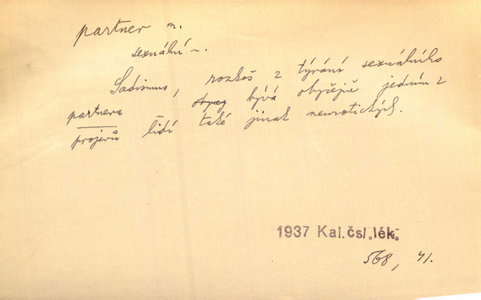 partner m.
sexuální ~.
Sadismus, rozkoš z týrání sexuálního
partnera bývá obyčejně jedním z
projevů lidí také jinak neurotických.
1937 Kal. čsl. „lék.“
568, 41.